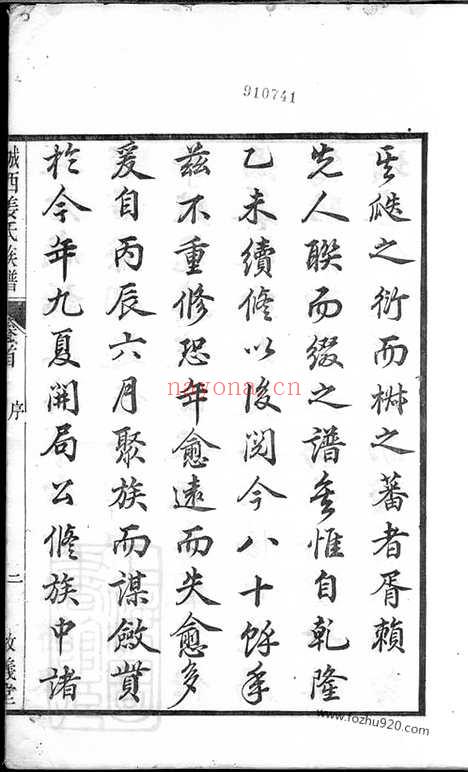 910741
其瓞之衍而椒之蕃者胥賴
先人聯而綴之譜焉惟自乾隆
乙未續修以後閱今八十餘年
茲不重修恐年愈遠而失愈多
爰自丙辰六月聚族而謀斂貲
於今年九夏開局公修族中諸
城西姜氏族譜 卷首 序 二 義堂
nayona.cn
www.fozhu920.com